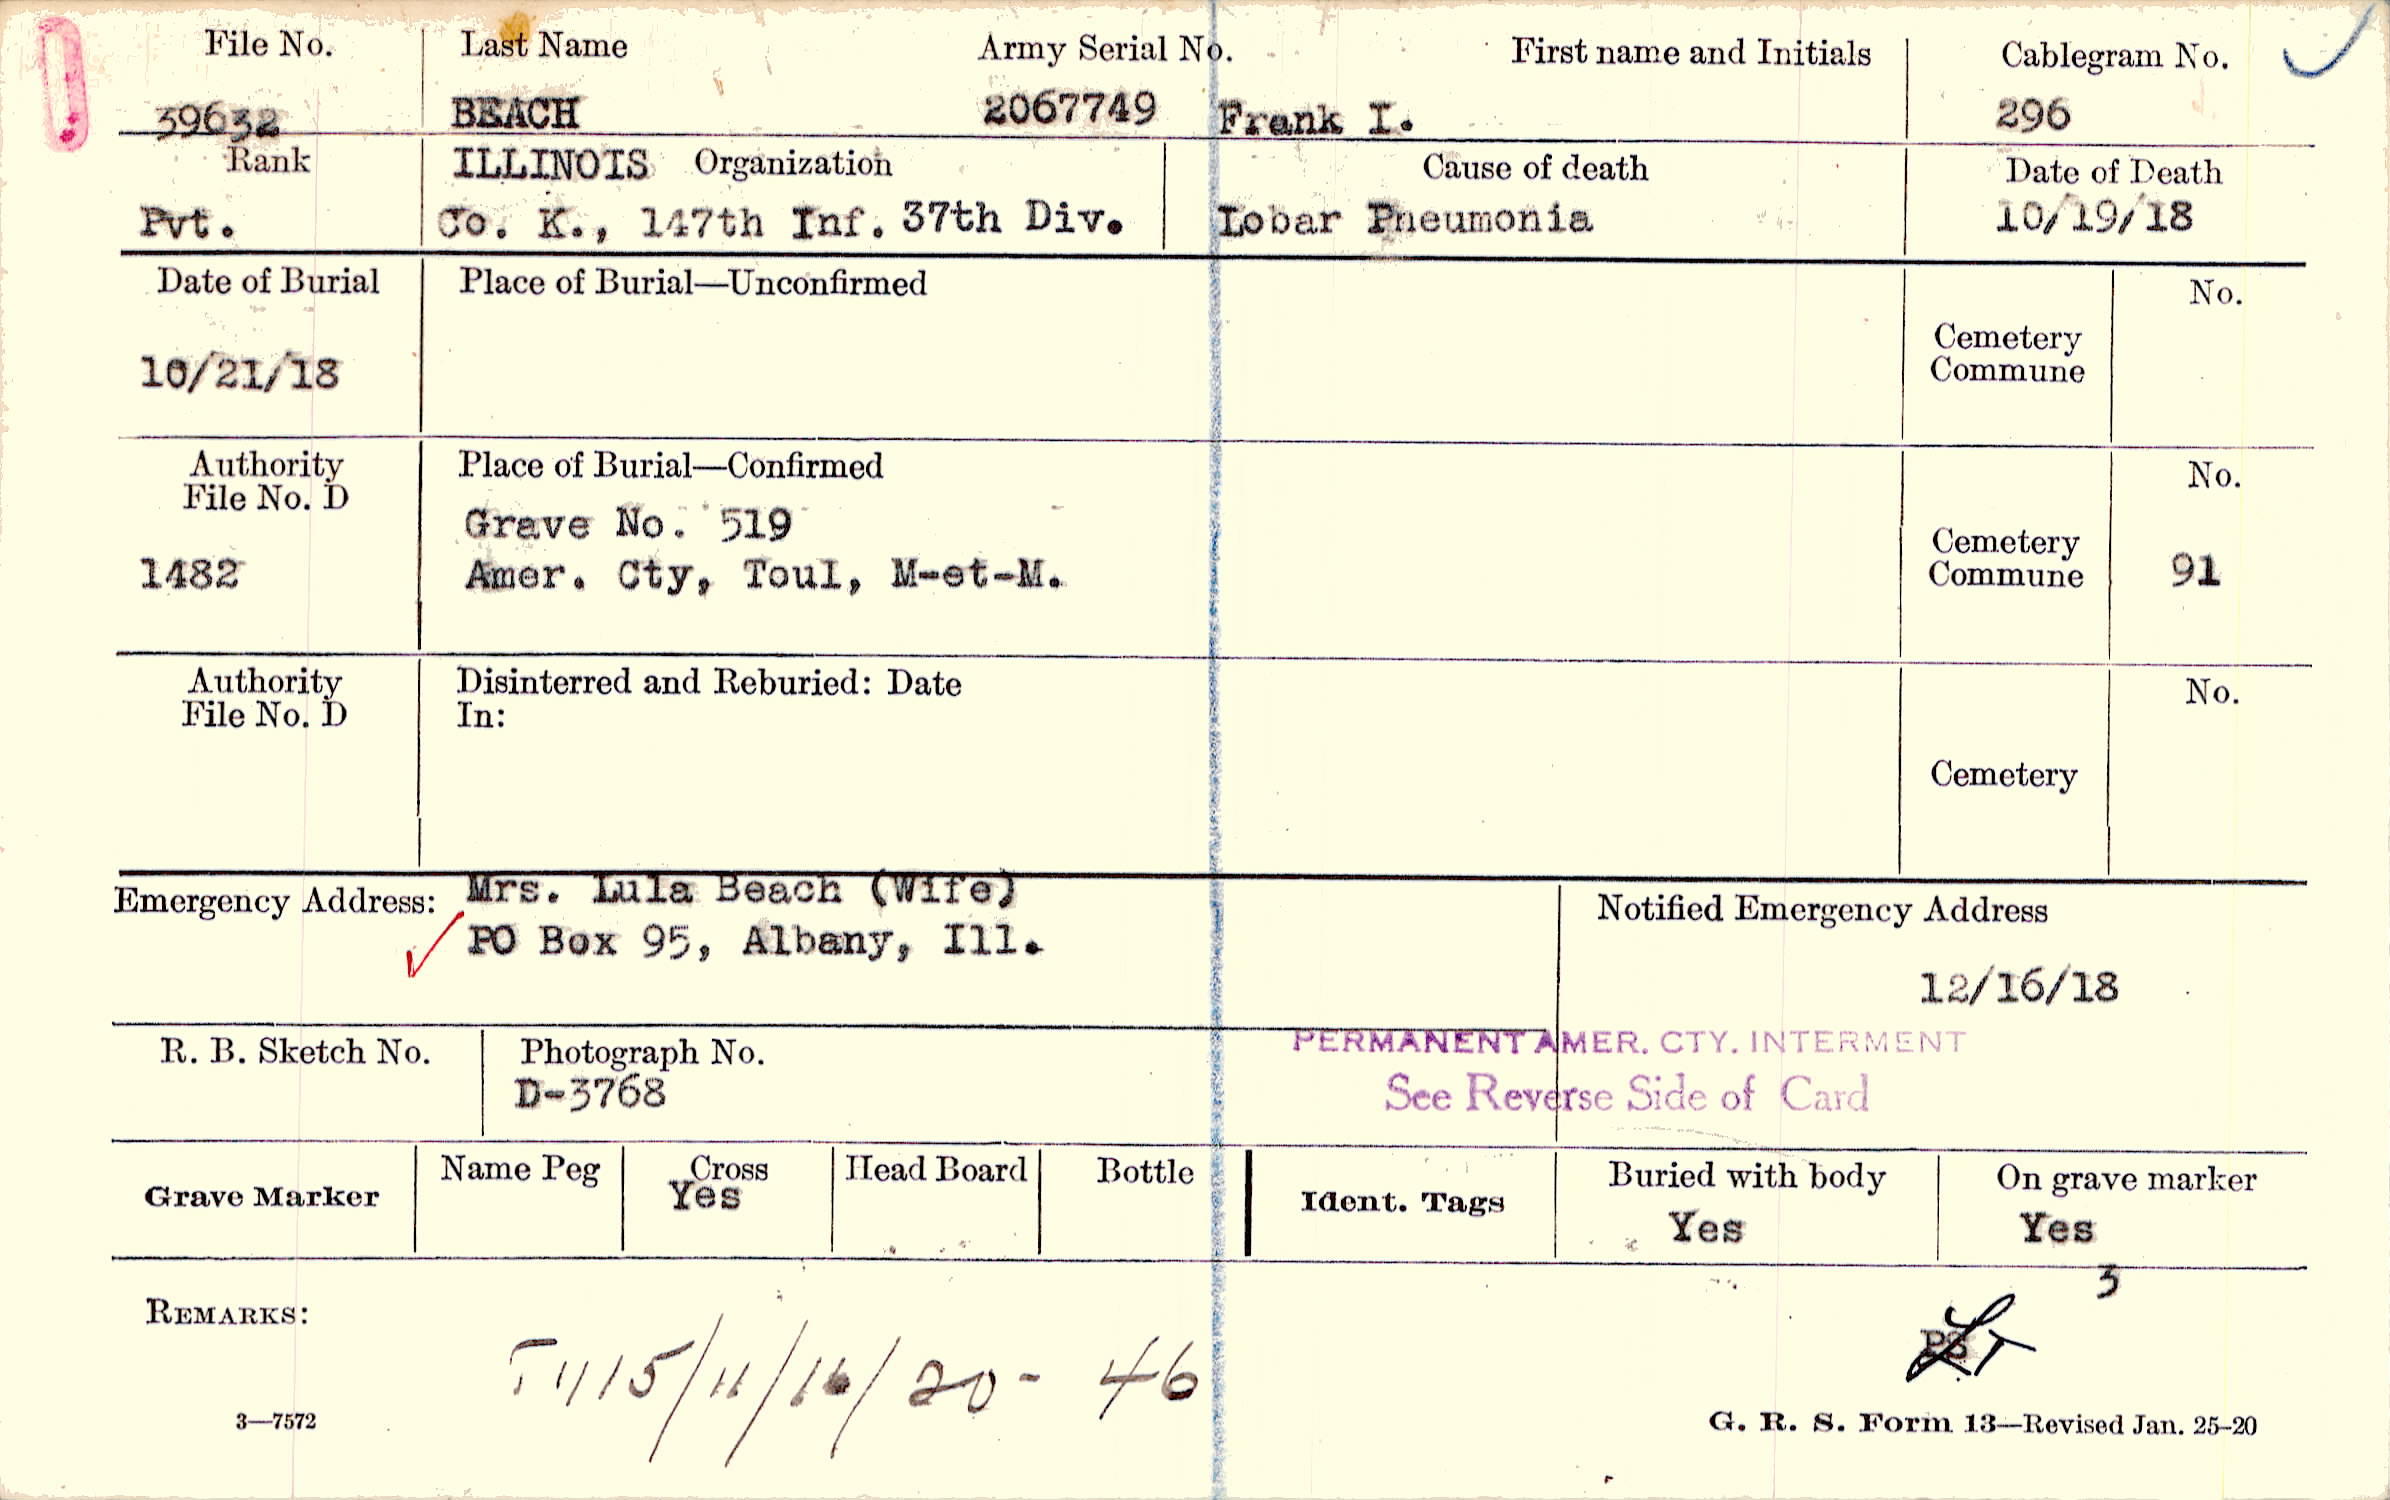 File No. Last Name Army Serial No. First name and Initials Cablegram No.
39632 BEACH 2067749 Frank I. 296
Rank ILLINOIS Organization Cause of death Date of Death
Pvt. Co. K., 147th Inf. 37th Div. Lobar Pneumonia 10/19/18
Date of Burial Place of Burial—Unconfirmed No.
Cemetery
Commune
10/21/18
Authority Place of Burial—Confirmed No.
File No. D
Grave No. 519
Cemetery
1482 Amer. Cty, Toul, M-et-M. Commune 91
Authority Disinterred and Reburied: Date No.
File No. D In:
Cemetery
Emergency Address: Mrs. Lula Beach (Wife) Notified Emergency Address
PO Box 95, Albany, Ill.
12/16/18
PERMANENT AMER. CTY. INTERMENT
R. B. Sketch No. Photograph No.
D-3768 See Reverse Side of Card
Grave Marker Name Peg Cross Head Board Bottle Ident. Tags Buried with body On grave marker
Yes Yes Yes
3
REMARKS:
/11/16/20 - 46
3—7572 G. R. S. Form 13—Revised Jan. 25-20